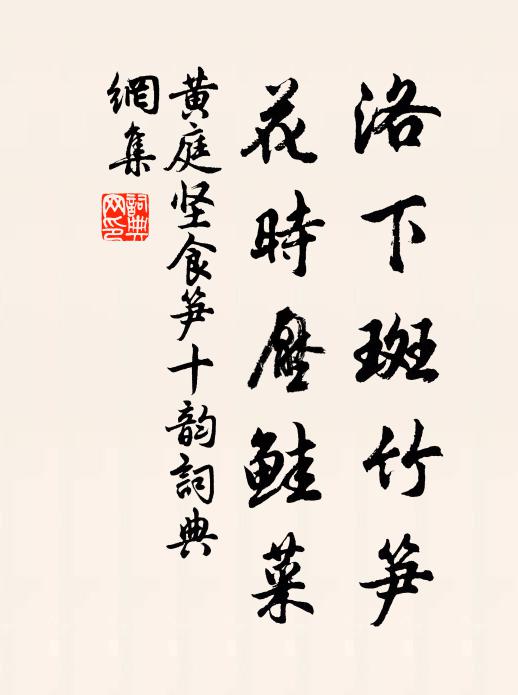 洛下斑竹笋
花時壓鮭菜
黄庭坚食笋十韵詞典
網集
詞典
网印